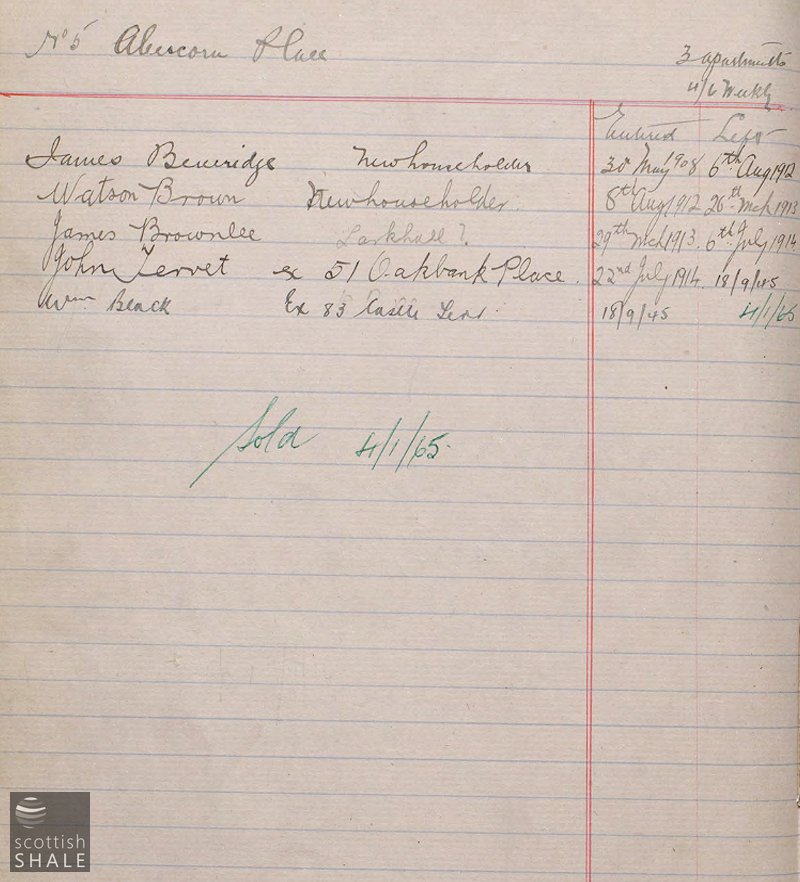 No 5 Abercorn Place
3 apartments
4/6 Weekly
Entered Left
James Beveridge New householder 30 May 1908 6th Aug 1912
Watson Brown New householder 8th Aug 1912 26th Mch 1913
James Brownlee Larkhall? 29th Mch 1913. 6th July 1914
John Tervet ex 51 Oakbank Place. 22nd July 1914. 18/9/45
Wm Black Ex 83 Castle 18/9/45 4/1/65
Sold 4/1/65.
scottish
SHALE